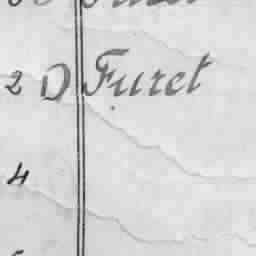 2 D Furet
4